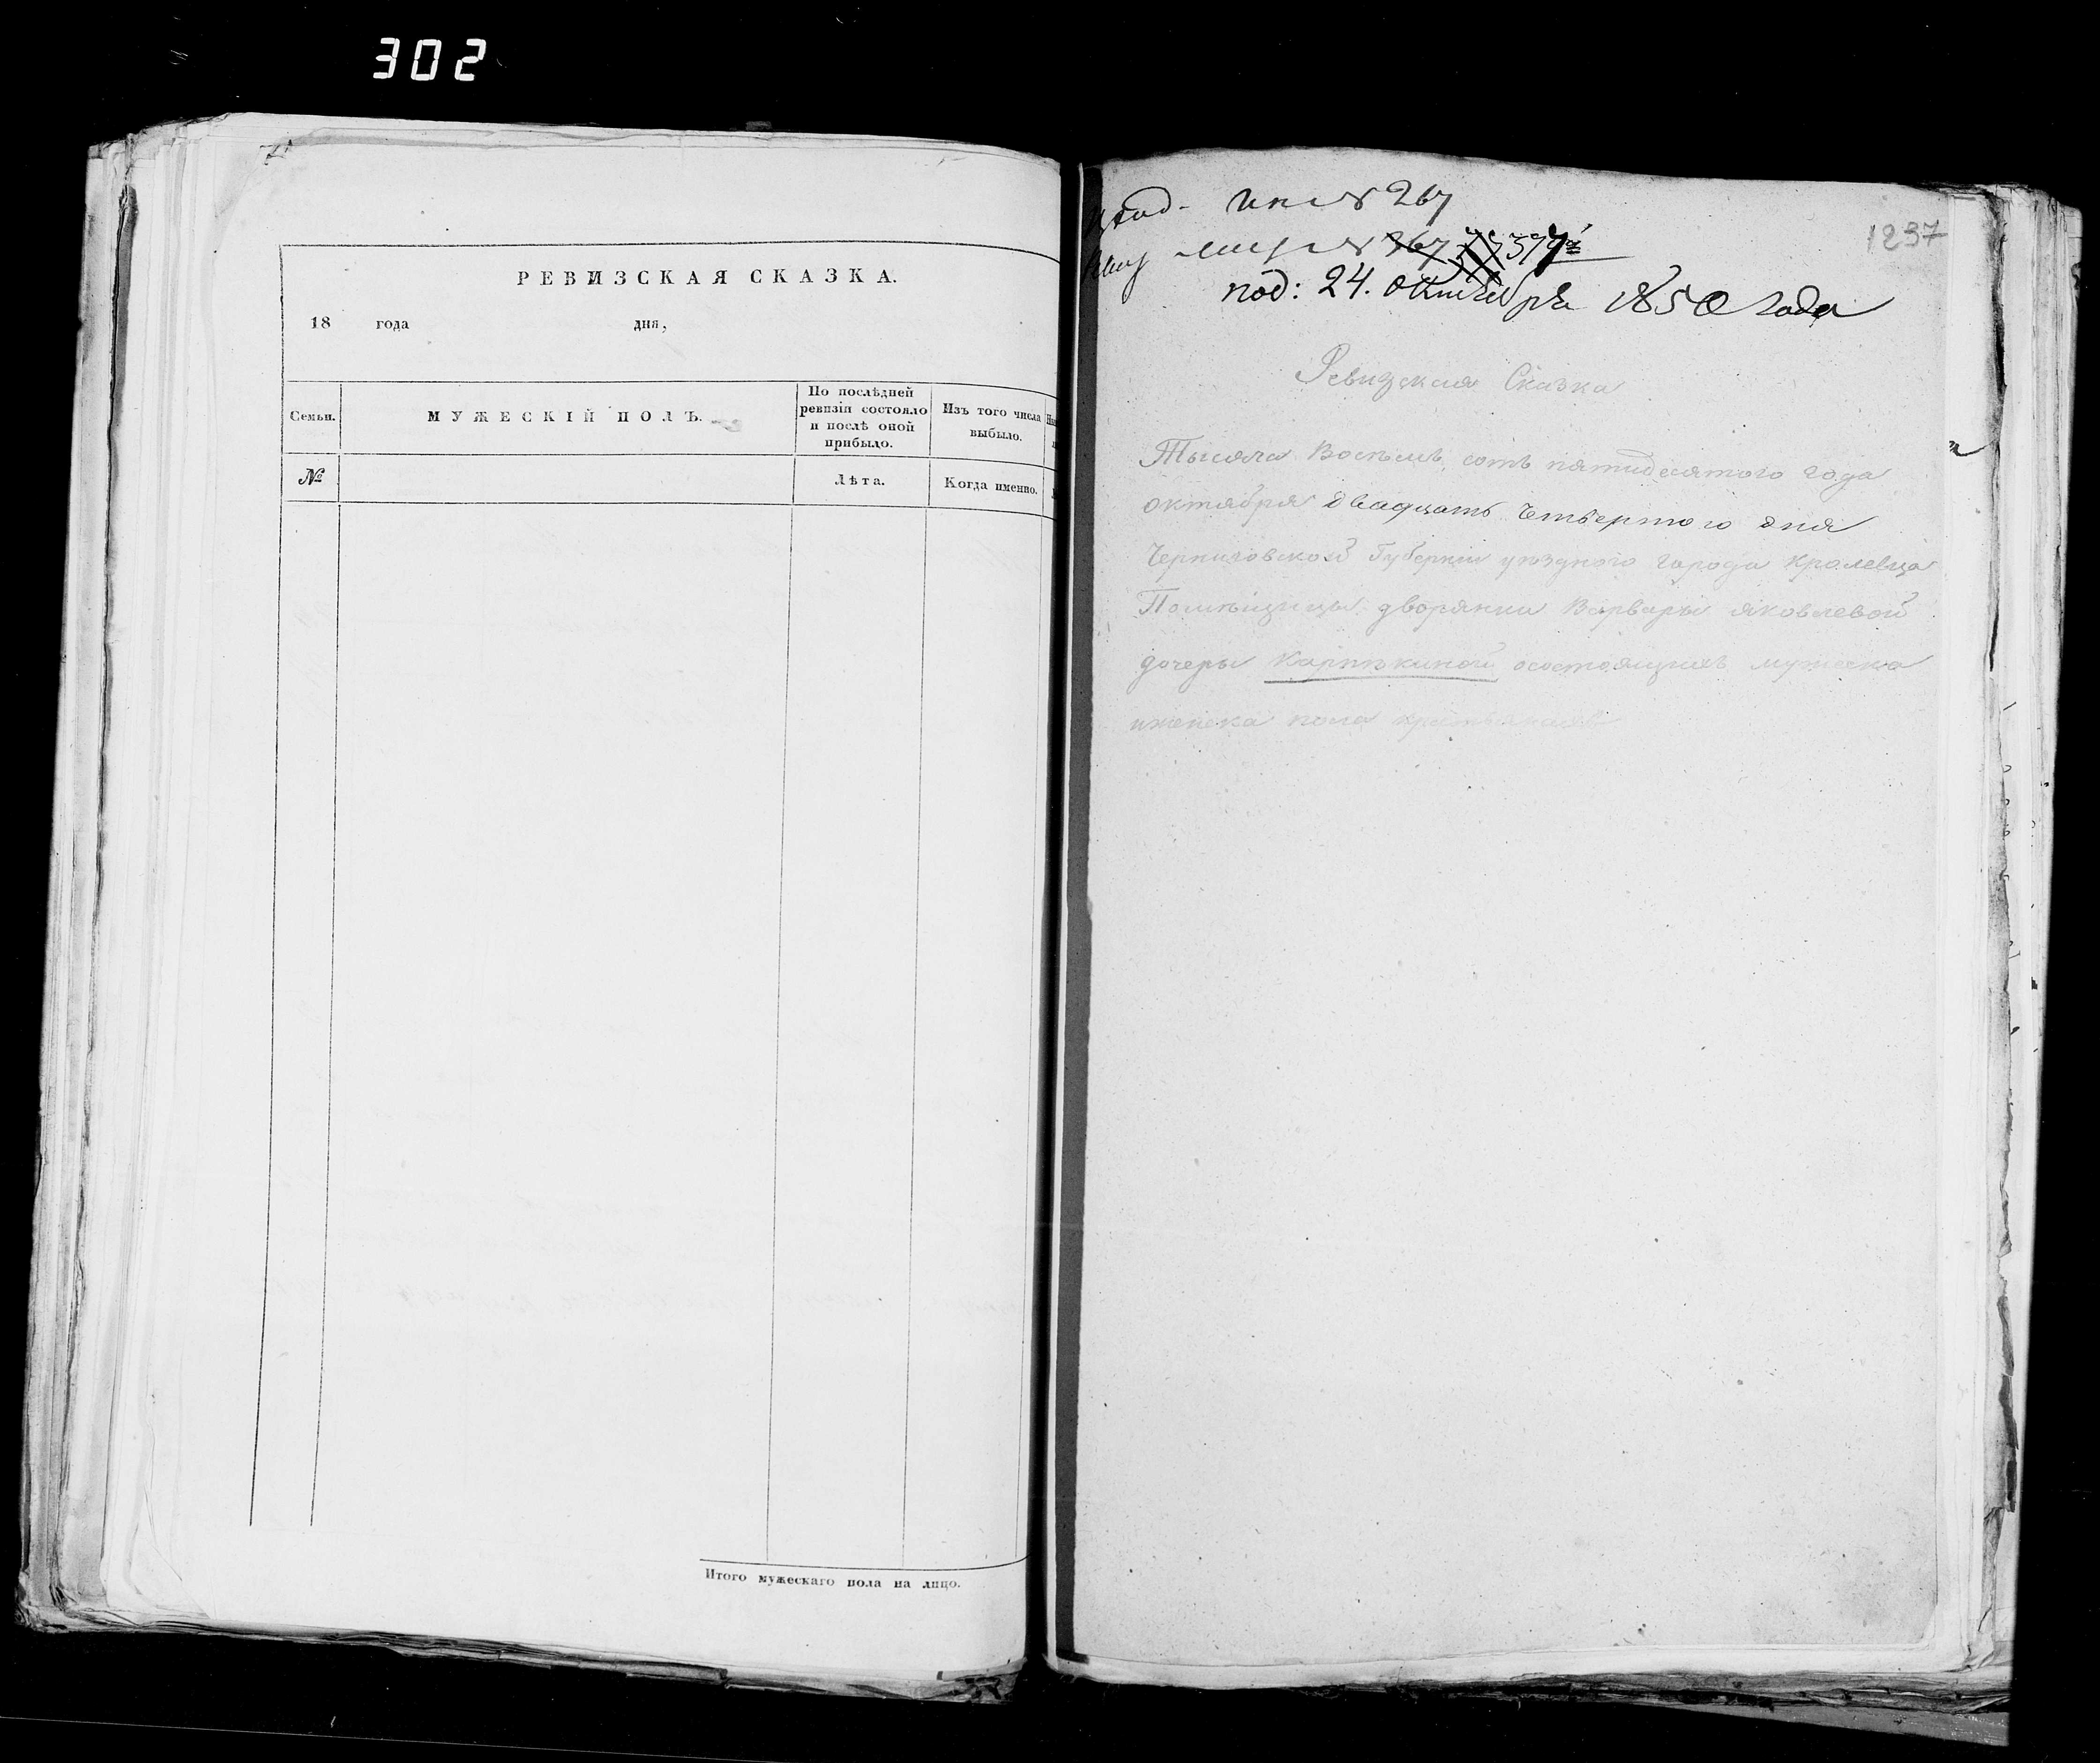 302
РЕВИЗСКАЯ СКАЗКА.
18 года дня,
Семьи.
МУЖЕСКІЙ ПОЛЪ.
По послѣдней
ревизіи состояло
и послѣ оной
прибыло.
Изъ того числа
выбыло.
№
Лѣта.
Когда именно.
Итого мужескаго пола на лицо.
№ 267
1237
под: 24. октября 1850 года
Ревизская Сказка
Тысяча Восемь сотъ пятидесятого года
октября двадцать Четвертого дня
Черниговской Губерніи уѣздного города Кролевца
Помѣщицы дворянки Варвары Яковлевой
дочеры осостоящихъ мужеска
иженска пола